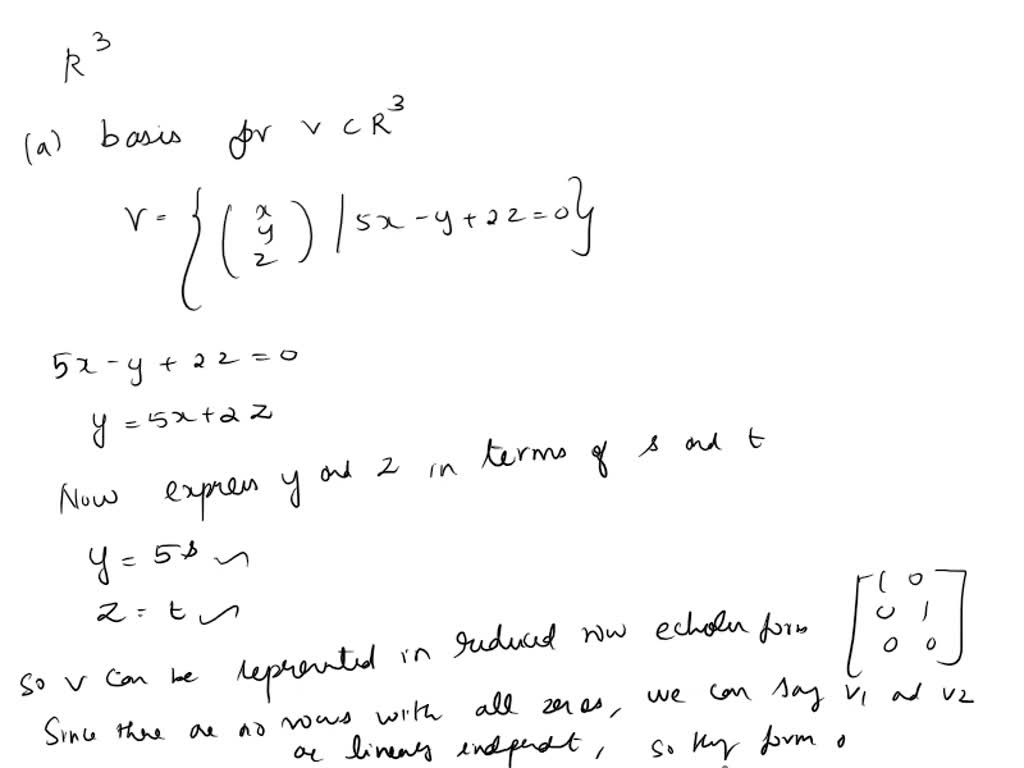 R³
(a) basis for V ⊂ R³
V = { ( x y z ) | 5x - y + 2z = 0 }
5x - y + 2z = 0
y = 5x + 2z
Now express y and z in terms of s and t
y = 5s
z = t
So v can be represented in reduced row echelon form [ 1 0
0 1
0 0 ]
Since there are no rows with all zeroes, we can say v1 ad v2
are linearly independent, so they form